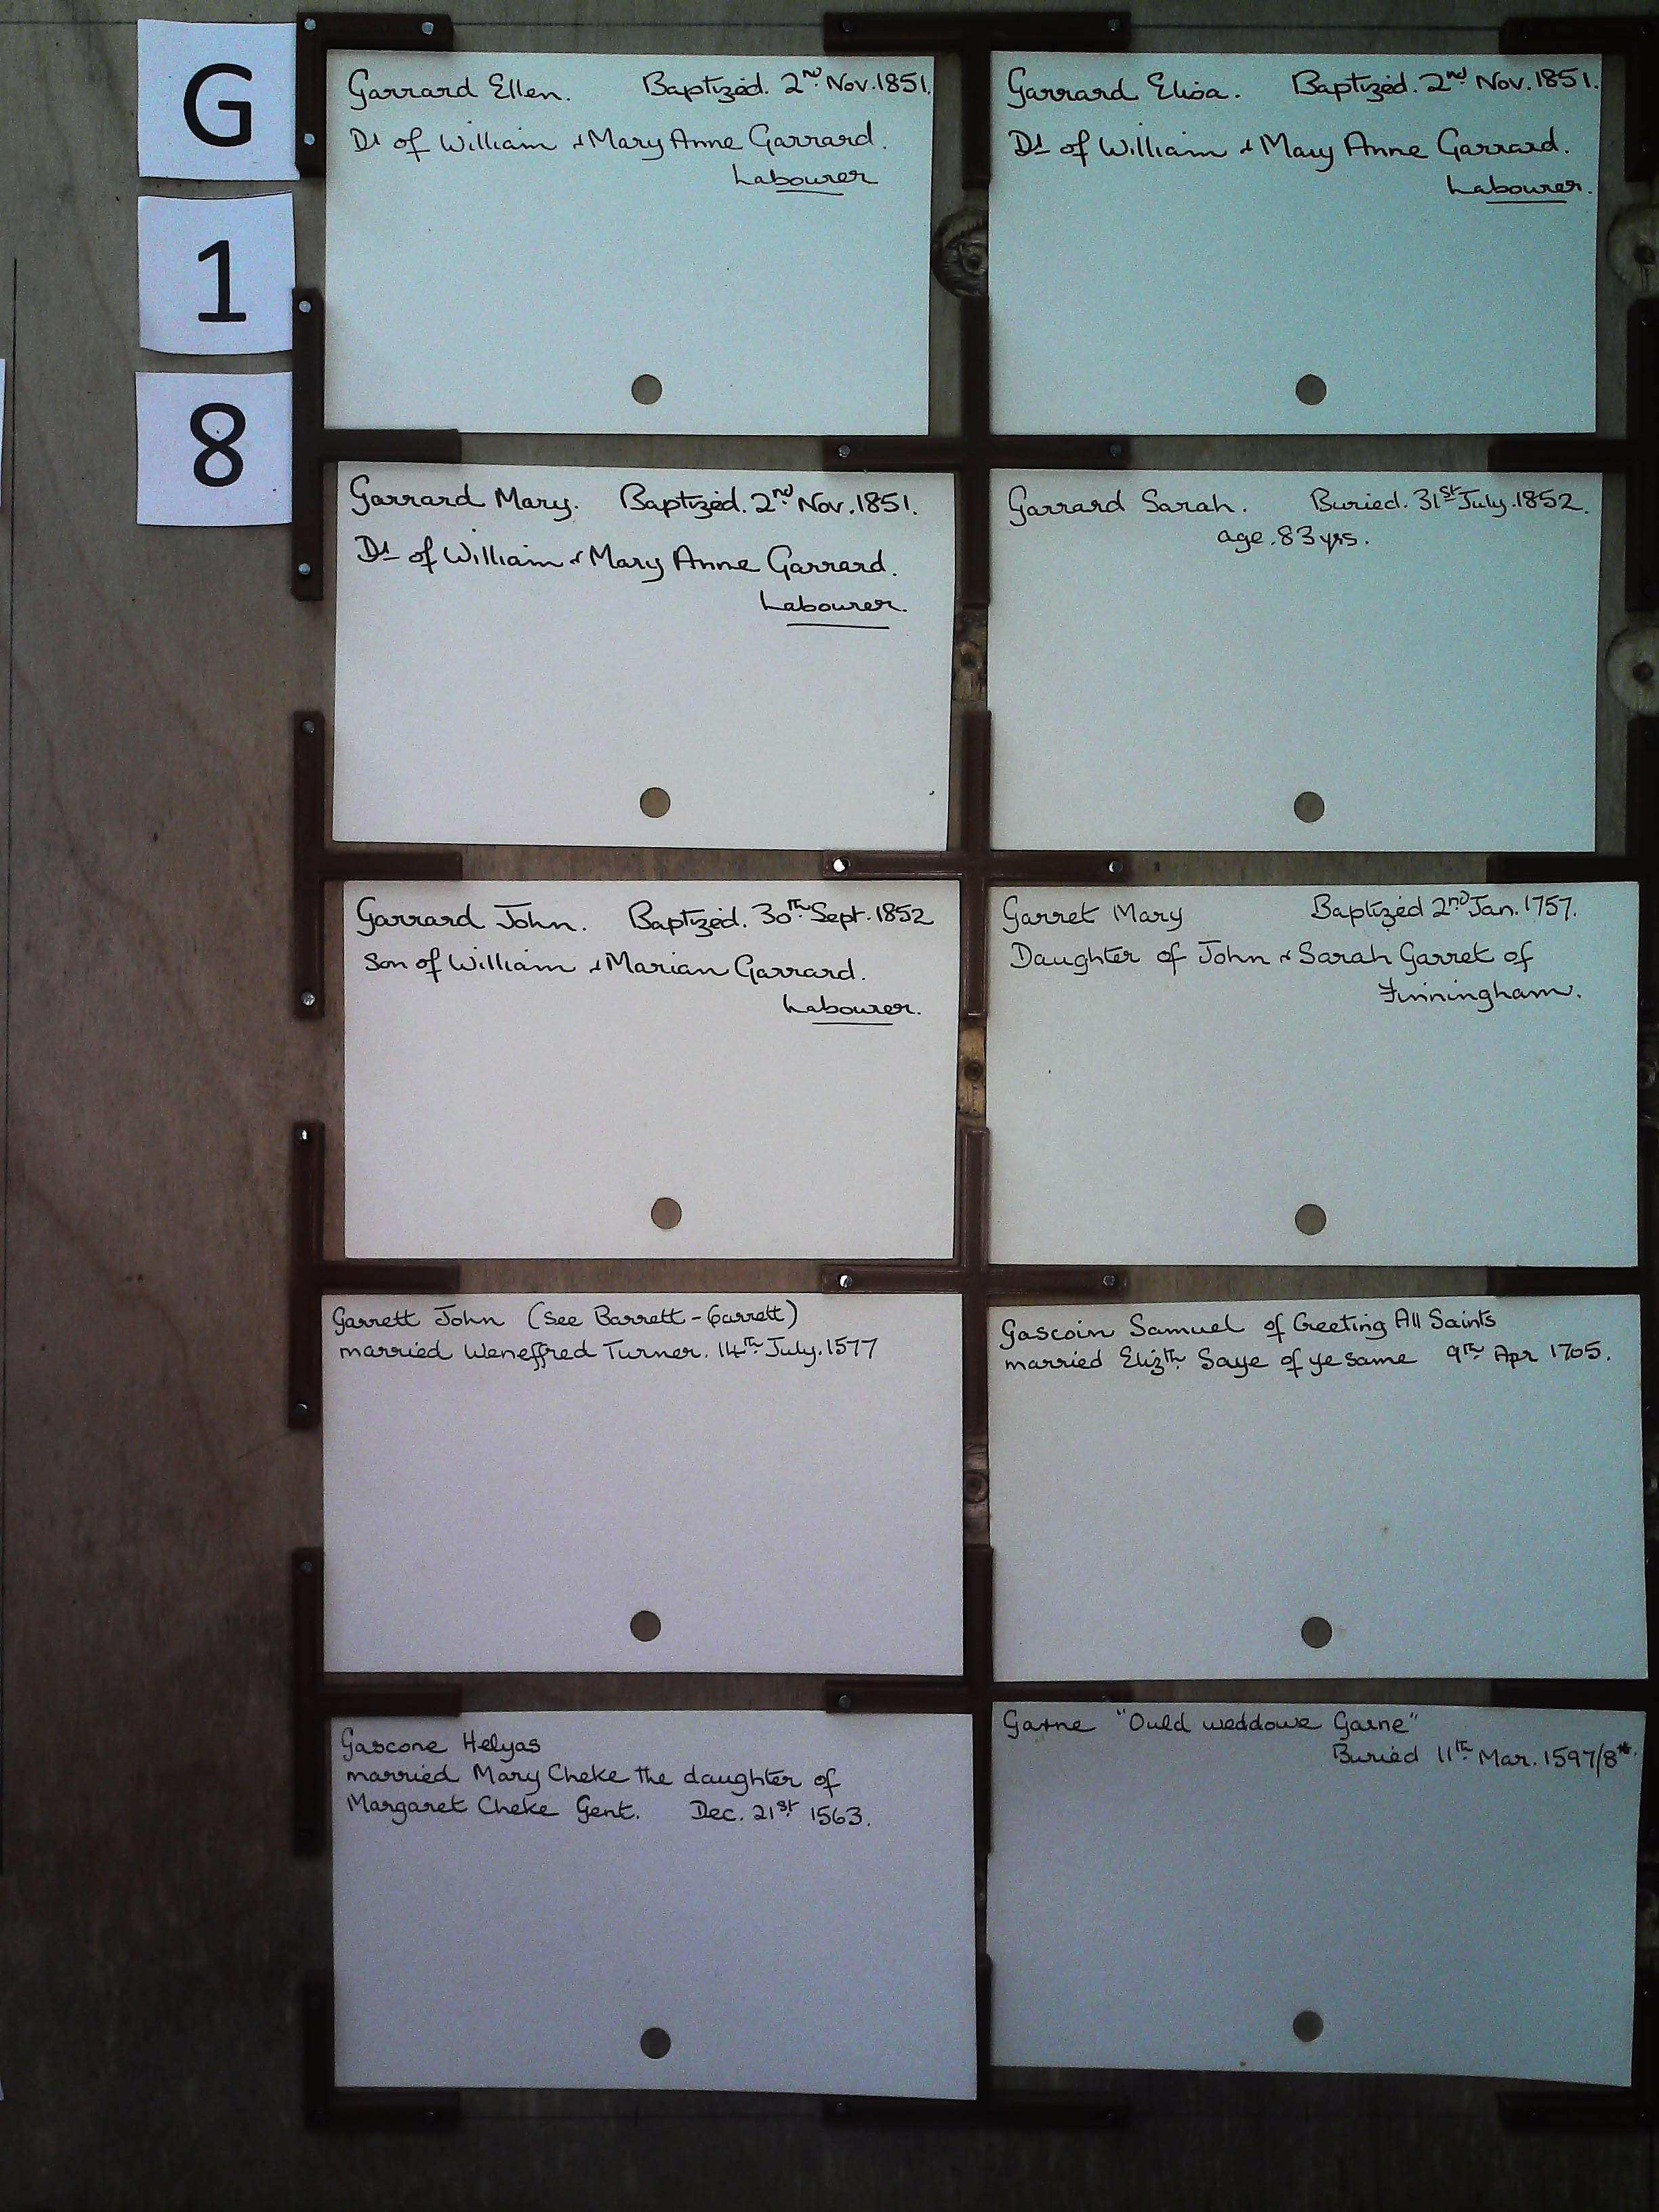 G
1
8
Garrard Ellen. Baptized. 2nd Nov. 1851.
Dt of William & Mary Anne Garrard.
Labourer
Garrard Elisa. Baptized. 2nd Nov. 1851.
Dt of William & Mary Anne Garrard.
Labourer.
Garrard Mary. Baptized. 2nd Nov. 1851.
Dt of William & Mary Anne Garrard.
Labourer.
Garrard Sarah. Buried. 31st July. 1852.
age. 83 yrs.
Garrard John. Baptized. 30th Sept. 1852
Son of William & Marian Garrard.
Labourer.
Garret Mary Baptized 2nd Jan. 1757.
Daughter of John & Sarah Garret of
Finningham.
Garrett John (see Barrett - Garrett)
married Weneffred Turner. 14th July. 1577
Gascoin Samuel of Creeting All Saints
married Elizth Saye of ye same 9th Apr 1705.
Gascone Helyas
married Mary Cheke the daughter of
Margaret Cheke Gent. Dec. 21st 1563.
Garne "Ould weddowe Garne"
Buried 11th Mar. 1597/8*.